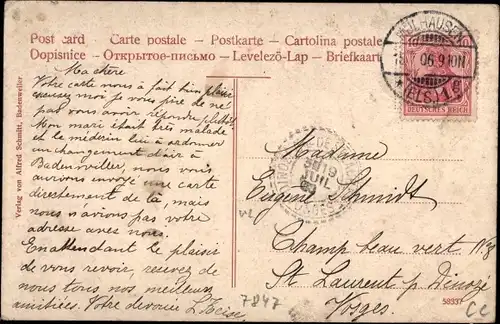 Post card - Carte postale - Postkarte - Cartolina postale
Dopisnice - Открытое-письмо - Levelező-Lap - Briefkaart
MÜLHAUSEN
06.9-10N
(ELS) 1
DEUTSCHES REICH
JUIL
Ma chère
Votre carte nous a fait bien plaisir
excusez moi je vous prie de ne
pas vous avoir répondu plutôt
Mon mari était très malade
et le médecin lui a ordonner
un changement d'air à
Badenwiller, nous vous
aurions envoyé une carte
directement de là, mais
nous n'avions pas votre
adresse avec nous.
En attendant le plaisir
de vous revoir, recevez de
nous tous nos meilleurs
amitiées. Votre devouée
Madame
Eugène Schmidt
Champ beau vert
St Laurent p
Vosges.
Verlag von Alfred Schmitt, Badenweiler
7847
58337
CC